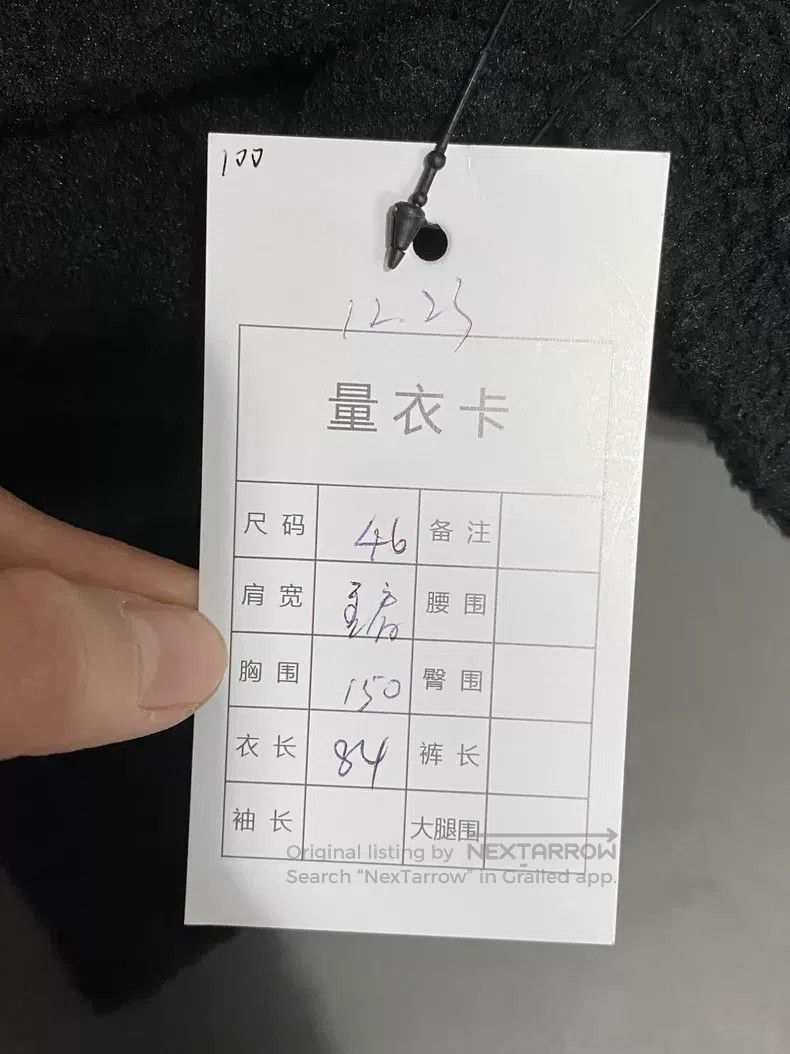 100
12.23
量衣卡
尺码 46 备注
肩宽 腰围
胸围 150 臀围
衣长 84 裤长
袖长 大腿围
Original listing by NEXTARROW
Search “NexTarrow” in Grailed app.